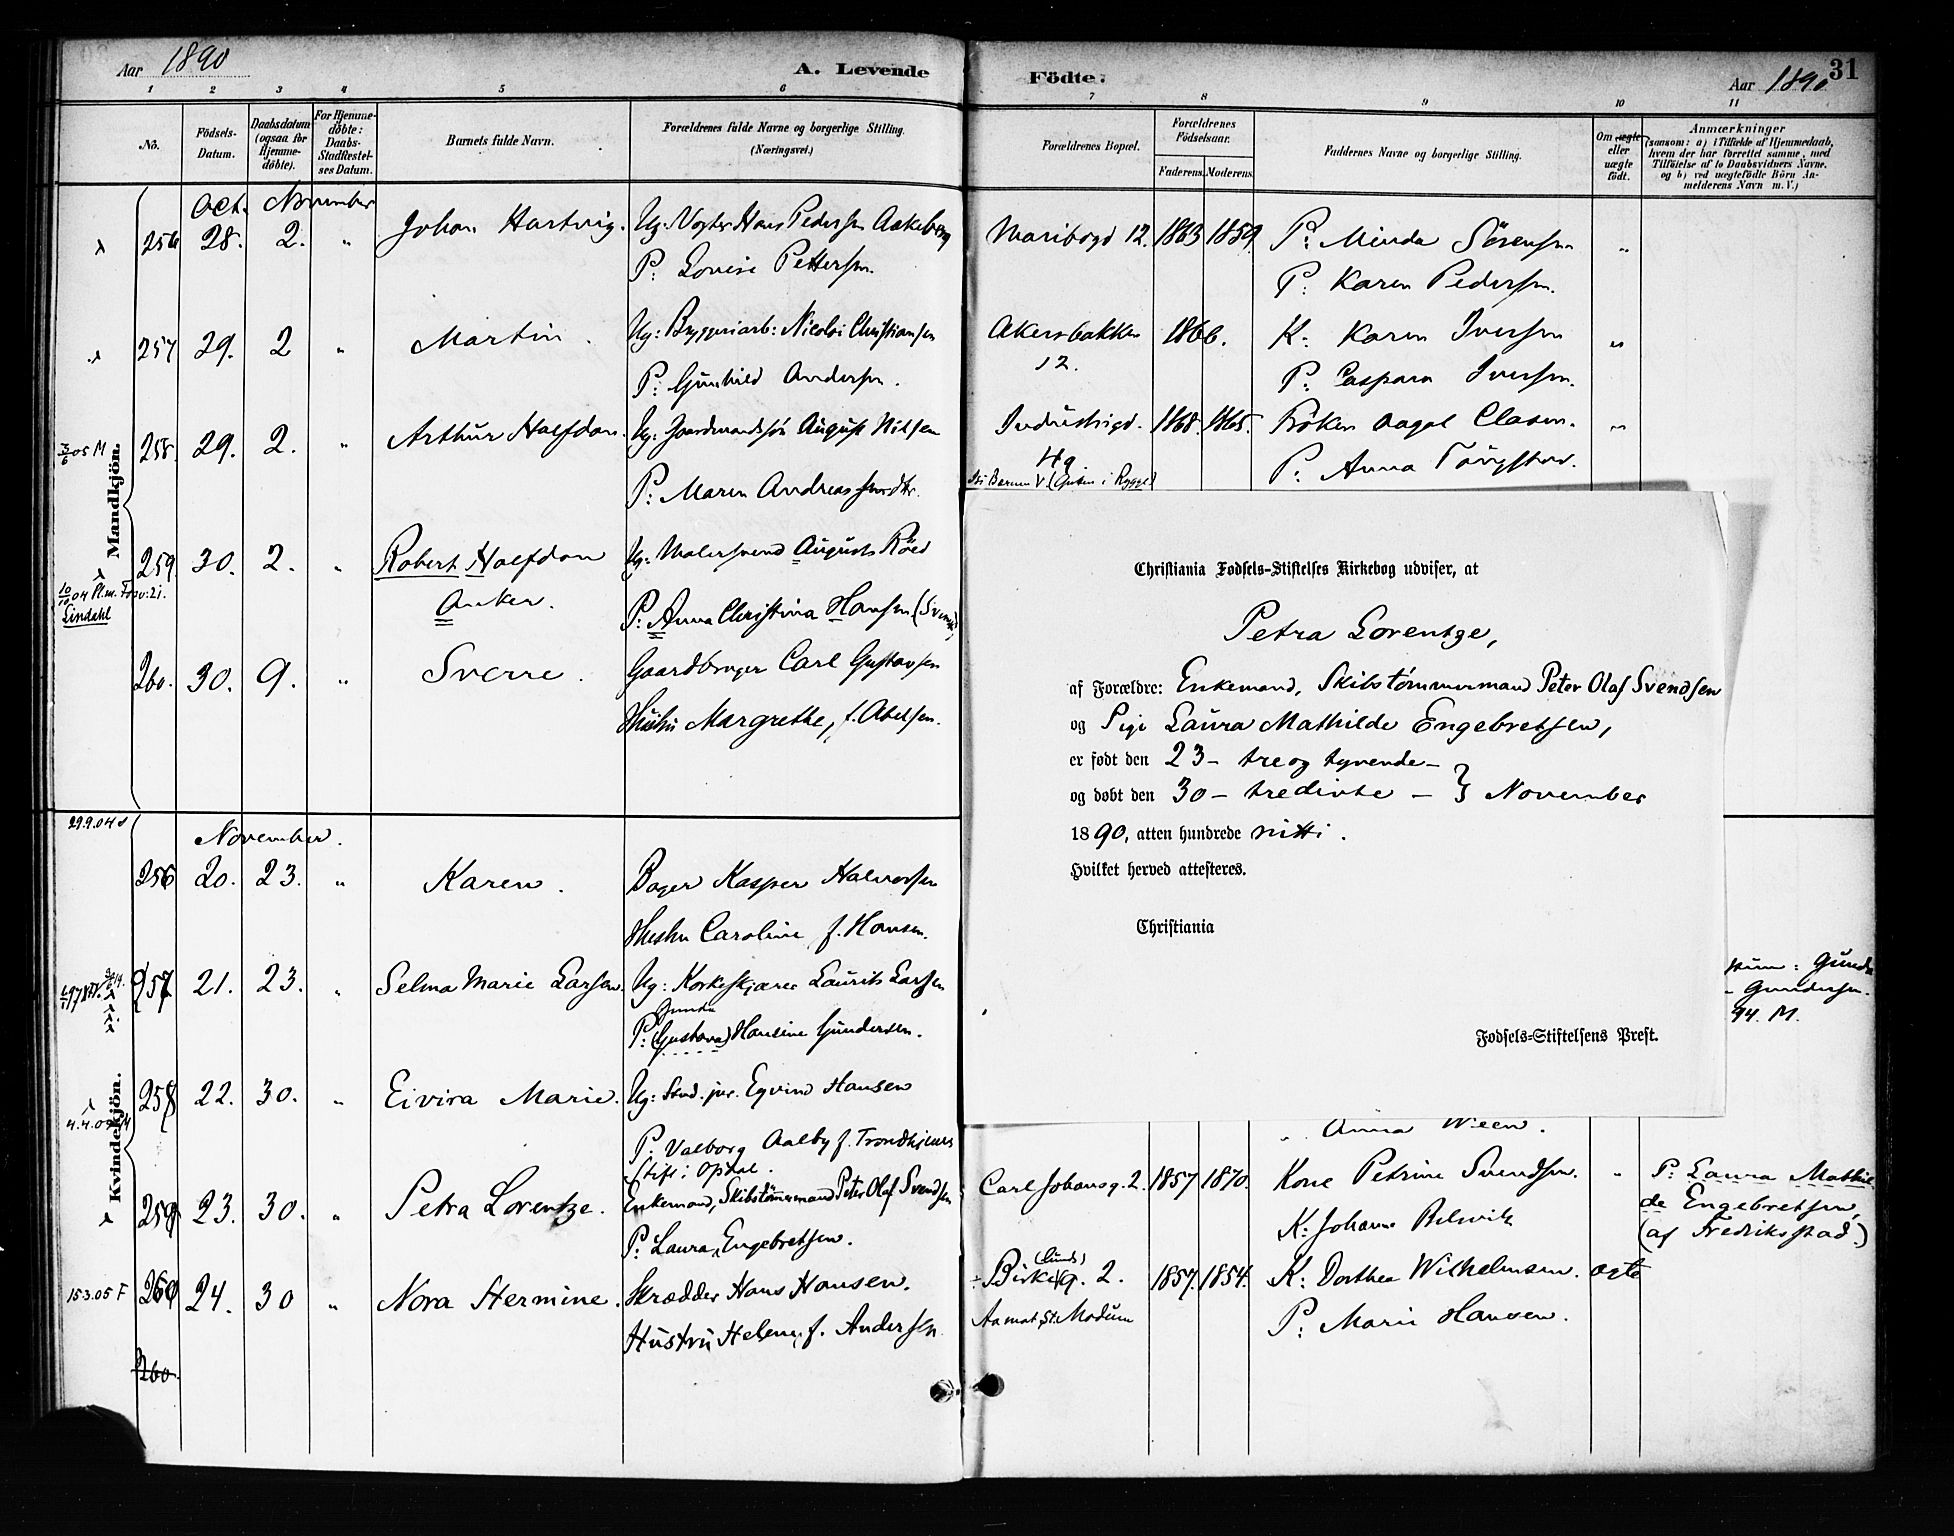 Aar 1890 A. Levende
1 2 3 4 5 6
No. Födsels-Datum. Daabsdatum (ogsaa for Hjemmedöbte). For Hjemmedöbte: Daabs-Stadfestelses Datum. Barnets fulde Navn. Forældrenes fulde Navne og borgerlige Stilling. (Næringsvei.)
Oct. November
256 28. 2. " Johan Hartvig. Ug: Hans Pedersen
P: Lovise Pettersen.
257 29. 2 " Martin. Ug: Bryggeriarb: Nicolai Christiansen
P: Gunhild Andersen.
3/6 05 M 258. 29. 2. " Arthur Halfdan. Ug: Gaardmandssön August Nilsen
P: Maren Andreasdr.
Mandkjön.
259 30. 2. " Robert Halfdan Ug: Malersvend August Röed
10/10 04 Lindahl
Anker. P: Anna Christina Hansen
260. 30. 9. " Sverre. Gaardbruger Carl Gustavsen
Hustru Margrethe, f. Abelsen.
29.9.04 November.
256 20. 23. " Karen. Bager Kasper Halvorsen
Hustru Caroline f. Hansen.
257 21. 23. " Selma Marie Larsen. Ug: Korkeskjærer Laurits Larsen
Gunda
P: (Gustava) Hansine Gundersen.
Kvindekjön.
258 22. 30. " Elvira Marie. Ug: Stud. jur. Eyvind Hansen
P: Valborg Aalby f. Trondhjems
Stift: Opdal.
259 23. 30. " Petra Lorentze. Enkemand, Skibstömmermand Peter Olaf Svendsen
P: Laura Engebretsen.
15.3.05 F 260 24. 30 " Nora Hermine. Skrædder Hans Hansen.
Hustru Helene f. Andersen
260.
Födte. Aar 1890 31
7 8 9 10 11
Forældrenes Bopæl. Forældrenes Födselsaar. Faderens. Moderens. Faddernes Navne og borgerlige Stilling. Om ægte eller uægte födt. Anmærkninger
(saasom: a) i Tilfælde af Hjemmedaab,
hvem der har forrettet samme, med
Tilföielse af to Daabsvidners Navne,
og b) ved uægtefödte Börn Anmelderens Navn m. V.)
Maribogd 12. 1863 1859 P: Minda Sörensen "
P: Karen Pedersen.
Akersbakken 1866. K: Karen Iversen "
12. P: Caspara Iversen.
Industrigd. 1868. 1865. Fröken Aagot Clasen. "
49 P: Anna
Christiania Fødsels-Stiftelses Kirkebog udviser, at
Petra Lorentze,
af Forældre: Enkemand, Skibstömmermand Peter Olaf Svendsen
og Pige Laura Mathilde Engebretsen,
er født den 23 – treog tyvende –
og døbt den 30 – tredivte – } November
1890, atten hundrede nitti.
Hvilket herved attesteres.
Christiania
Fødsels-Stiftelsens Prest.
Gunda
Gundersen.
94. M.
Anna Wien.
Carl Johansg. 2. 1857 1870. Kone Petrine Svendsen. " P: Laura Mathil-
K: Johanne de Engebretsen,
(af Fredriksstad.)
(Lunds)
Birkeg. 2. 1857. 1854. K: Dorthea Wilhelmsen. ægte
Aamot, St. Modum P: Marie Hansen.